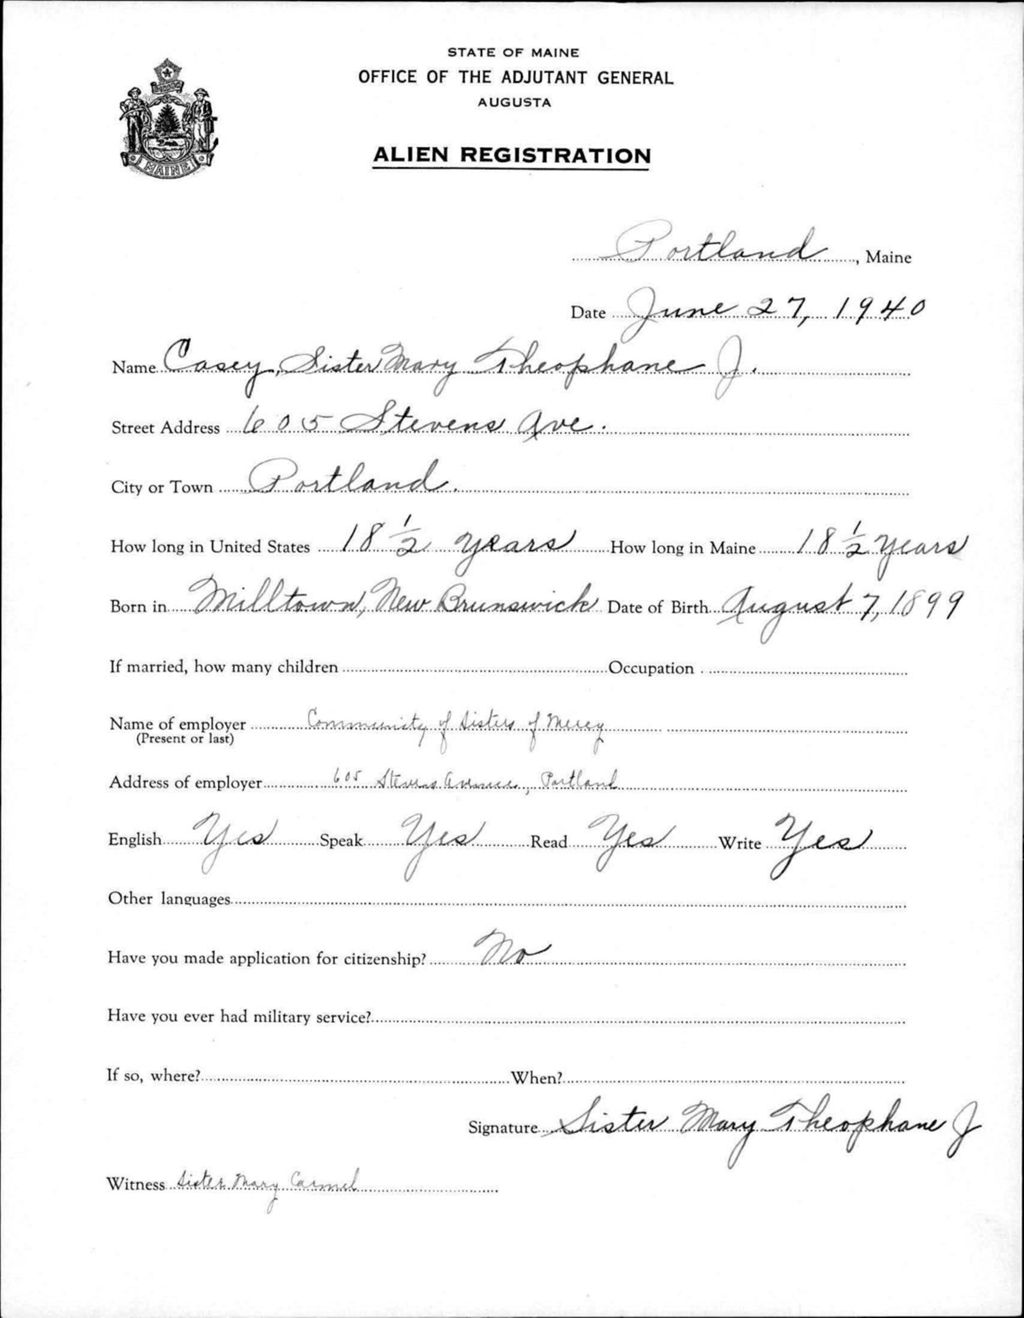 STATE OF MAINE
OFFICE OF THE ADJUTANT GENERAL
AUGUSTA
ALIEN REGISTRATION
MAINE
Portland, Maine
Date June 27, 1940
Name Casey, Sister Mary Theophane J.
Street Address 605 Stevens Ave.
City or Town Portland.
How long in United States 18 1/2 years How long in Maine 18 1/2 years
Born in Milltown, New Brunswick Date of Birth August 7, 1899
If married, how many children Occupation
Name of employer Community of Sisters of Mercy
(Present or last)
Address of employer 605 Stevens Avenue, Portland
English Yes Speak Yes Read Yes Write Yes
Other languages
Have you made application for citizenship? No
Have you ever had military service?
If so, where? When?
Signature Sister Mary Theophane J
Witness Sister Mary Carmel